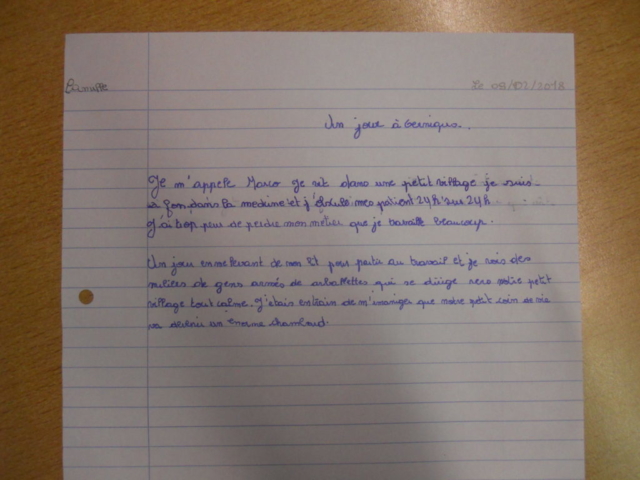 Le 09/02/2018
Un jour à Gernique.
Je m'appele Marco je vit dans une petit village je suis
a fon dans la medcine et j'éscule mes patient 24h sur 24h
J'ai trop peur de perdre mon métier que je travaille beaucoup.
Un jour en me levant de mon lit pour partir au travail et je vois des
miliés de gens armés de arbalettes qui se dirige vers notre petit
village tout calme. J'étais entrain de m'imaginer que notre petit coin de vie
va devenir un énorme chamboud.